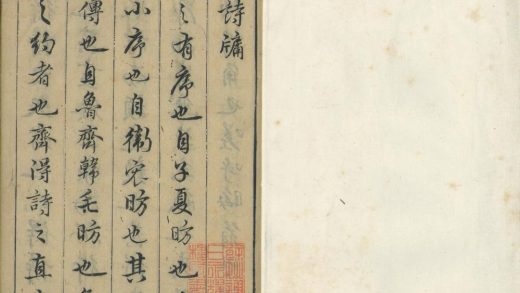 詩牗
之有序也自子夏昉也
小序也自衛宏昉也其
傳也自魯齊韓毛昉也
之約者也齊得詩之直